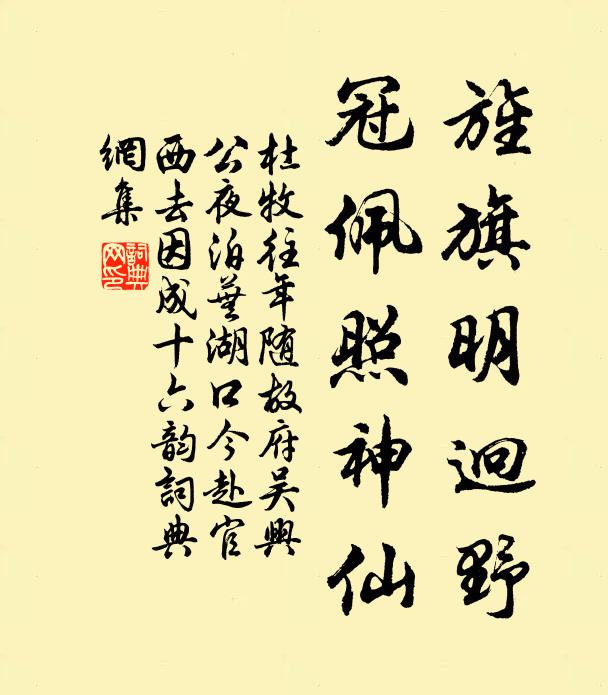 旌旗明迥野
冠佩照神仙
杜牧往年随故府吴興
公夜泊蕪湖口今赴官
西去因成十六韵詞典
網集
詞典
网印